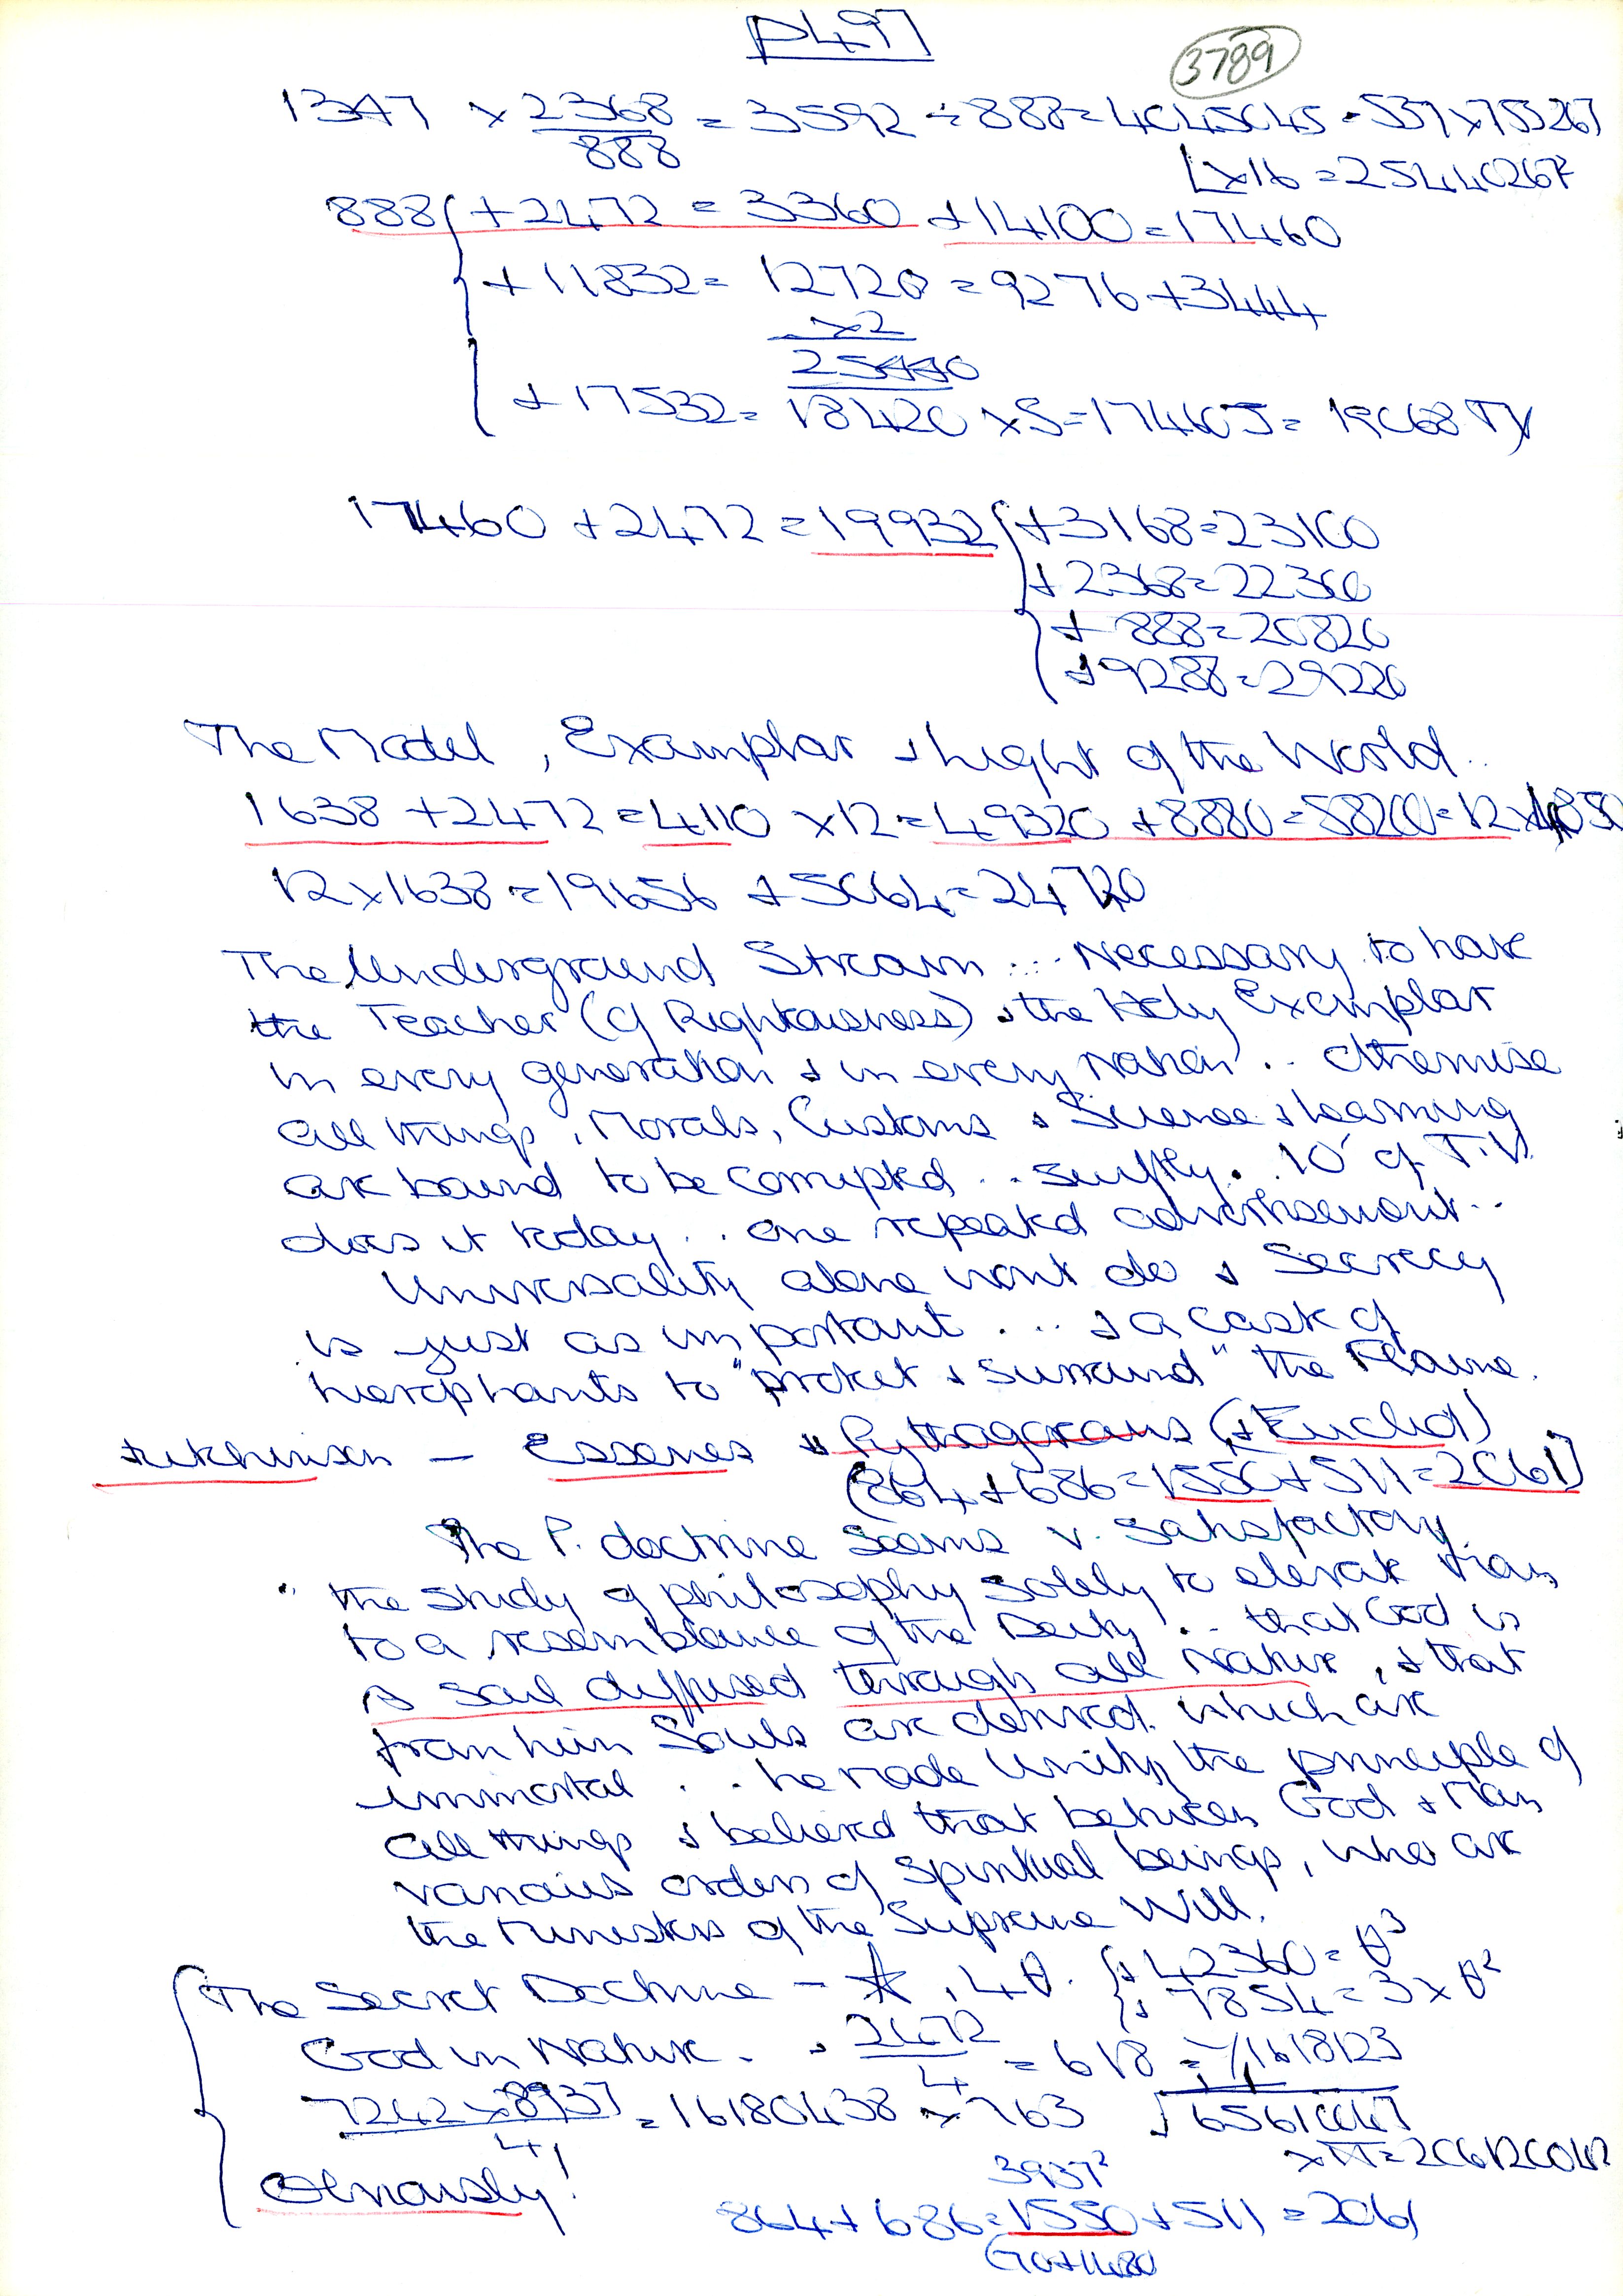 p497
3789
1347 × 2368/888 = 3592 ÷ 888 = 4045045 = 537 × 753267
×16 = 25440267²
888 { + 2472 = 3360 + 14100 = 17460
+ 11832 = 12720 = 9276 + 3444
×2
25440
+ 17532 = 18420 × 5 = 17460
17460 + 2472 = 19932 { + 3168 = 23100
+ 2368 = 22300
+ 888 = 20820
+ 9288 = 29220
The Model, Examplar + Light of the World..
1638 + 2472 = 4110 × 12 = 49320 + 8880 = 58200 = 12 × 4850
12 × 1638 = 19656 + 5064 = 24720
The Underground Stream ... Necessary to have
the Teacher (of Rightousness) + the Holy Exemplar
in every generation + in every Nation .. otherwise
all things, Morals, Customs + Science + learning
are bound to be corrupted .. swiftly. 10' of T.V.
does it today .. one repeated advertisement..
Universality alone wont do + Secrecy
is just as important ... + a caste of
hierophants to "protect + surround" the Flame.
Hutchinson – Essenes + Pythagoreans (+ Euclid)
(864 + 686 = 1550 + 511 = 2061)
The P. doctrine seems v. satisfactory
" the study of philosophy solely to elevate Man
to a resemblance of the Deity .. that God is
a soul diffused through all Nature, + that
from him Souls are derived which are
immortal .. he made Unity the principle of
all things + believed that between God + Man
various orders of spiritual beings, who are
the Ministers of the Supreme Will.
The Secret Doctrine – ☆, 4θ. { + 42360 = θ³
+ 7854 = 3 × θ²
God in Nature. 2472/4 = 618 = 1/1618123
7242 × 8937/4 = 16180438 × 763 √65610047
× π = 206120412
Obviously!
3937²
864 + 686 = 1550 + 511 = 2061
(70 + 1480